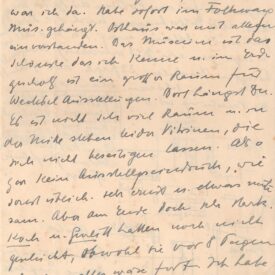 war ich da. Habe sofort im Folkwang
Mus. gehängt. Osthaus war mit allem
einverstanden. Das Museum ist das
schönste das ich kenne u. im Erd
geschoß ist ein großer Raum für
Wechsel Ausstellungen. Dort hängst Du.
Es ist nicht sehr viel Raum u. in
der Mitte stehen leider Vitrinen, die
sich nicht beseitigen lassen. Also
gar kein Ausstellungseindruck, wie
sonst üblich. sehr ernst u. etwas
sam. Aber am Ende doch
Koch u. Gurlitt hatten noch nicht
geschickt, obwohl sie vor 8 Tagen
alles wäre fort. Ich habe